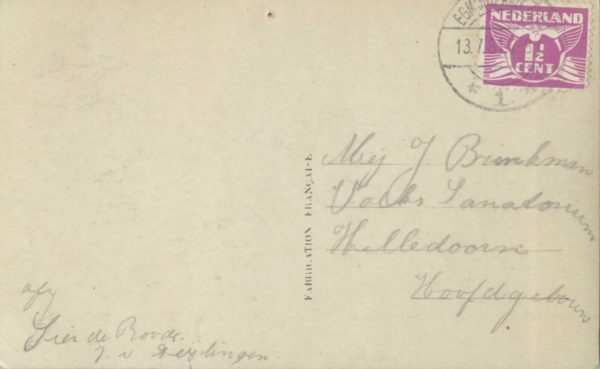 EGM
13.7
1
NEDERLAND
1½
CENT
FABRICATION FRANÇAISE
Mej J. Brinkman
Volks Sanatorium
Helledoorn
Hoofdgebouw
afz
de Roode
J. v